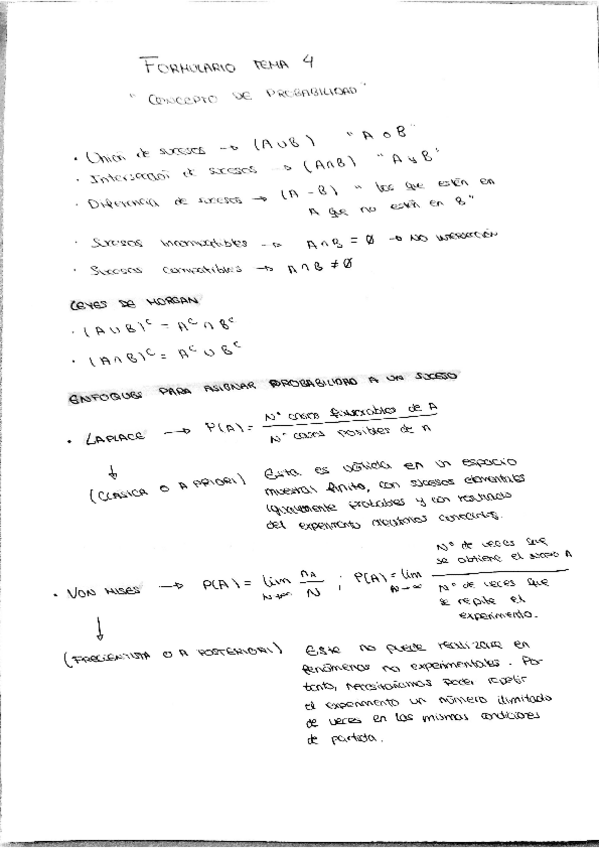 FORMULARIO TEMA 4
"CONCEPTO DE PROBABILIDAD"
· Unión de sucesos → (A∪B) "A o B"
· Intersección de sucesos → (A∩B) "A y B"
· Diferencia de sucesos → (A-B) "los que están en
A que no están en B"
· Sucesos incompatibles → A∩B = Ø → NO INTERSECCIÓN
· Sucesos compatibles → A∩B ≠ Ø
LEYES DE MORGAN
· (A∪B)ᶜ = Aᶜ ∩ Bᶜ
· (A∩B)ᶜ = Aᶜ ∪ Bᶜ
ENFOQUES PARA ASIGNAR PROBABILIDAD A UN SUCESO
· LAPLACE → P(A) = Nº casos favorables de A / Nº casos posibles de n
↓
(CLÁSICA O A PRIORI)
Esta es válida en un espacio
muestral finito, con sucesos elementales
igualmente probables y con resultado
del experimento aleatorios conocidos.
· VON MISES → P(A) = lim N→∞ nA / N ; P(A) = lim N→∞ Nº de veces que se obtiene el suceso A / Nº de veces que se repite el experimento.
↓
(FRECUENTISTA O A POSTERIORI)
Este no puede realizarse en
fenómenos no experimentales. Por
tanto, necesitaríamos poder repetir
el experimento un número ilimitado
de veces en las mismas condiciones
de partida.